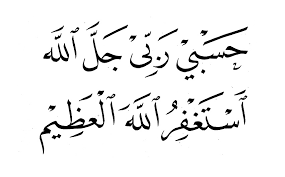 حَسْبِيْ رَبِّيْ جَلَّ اللّٰه
اَسْتَغْفِرُ اللّٰهَ الْعَظِيْم